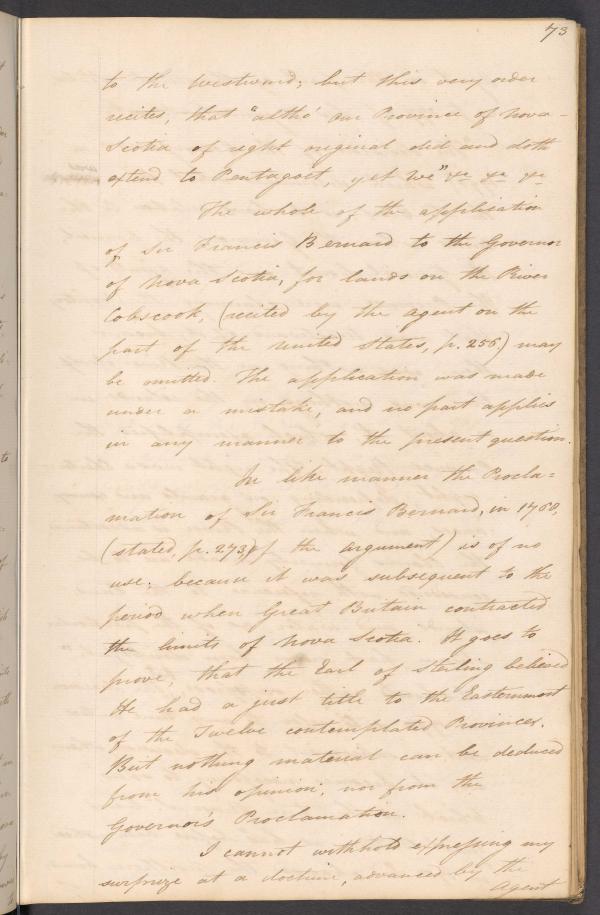 73
to the westward; but this very order
recites, that "altho' our Province of Nova-
Scotia of right original did and doth
extend to Pentagoet, yet We" &c &c &c
The whole of the application
of Sir Francis Bernard to the Governor
of Nova Scotia, for lands on the River
Cobscook, (recited by the agent on the
part of the United States, p. 256) may
be omitted. The application was made
under a mistake, and no part applies
in any manner to the present question.
In like manner the Procla=
mation of Sir Francis Bernard, in 1760,
(stated, p. 273, of the argument) is of no
use; because it was subsequent to the
period when Great Britain contracted
the limits of Nova Scotia. It goes to
prove, that the Earl of Sterling believed
He had a just title to the Easternmost
of the Twelve contemplated Provinces.
But nothing material can be deduced
from his opinion; nor from the
Governor's Proclamation.
I cannot withhold expressing my
surprize at a doctrine, advanced by the
Agent